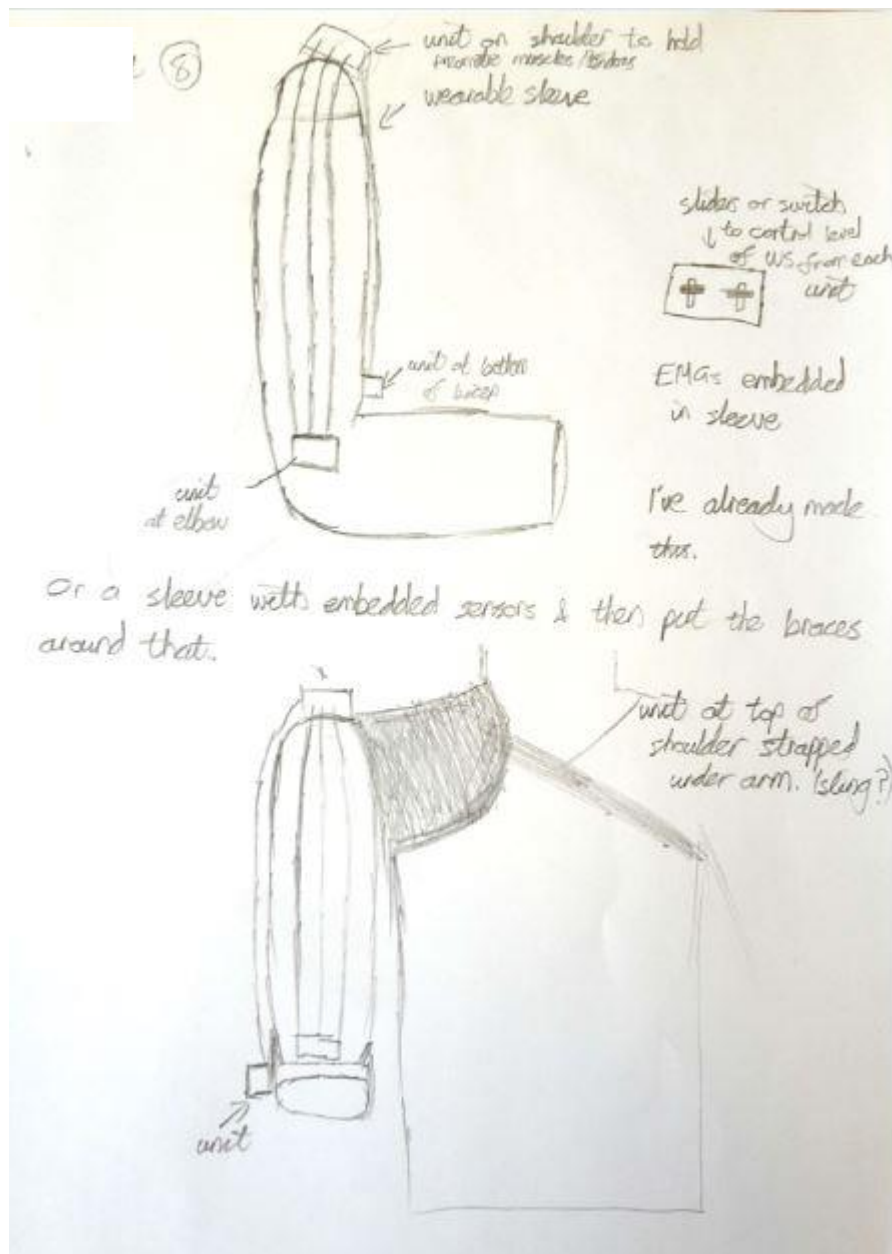 8
unit on shoulder to hold
pneumatic muscles/tendons
wearable sleeve
sliders or switch
to control level
of US from each
unit
unit at bottom
of bicep
EMGs embedded
in sleeve
unit
at elbow
I've already made
this.
Or a sleeve with embedded sensors & then put the braces
around that.
unit at top of
shoulder strapped
under arm. (sling?)
unit